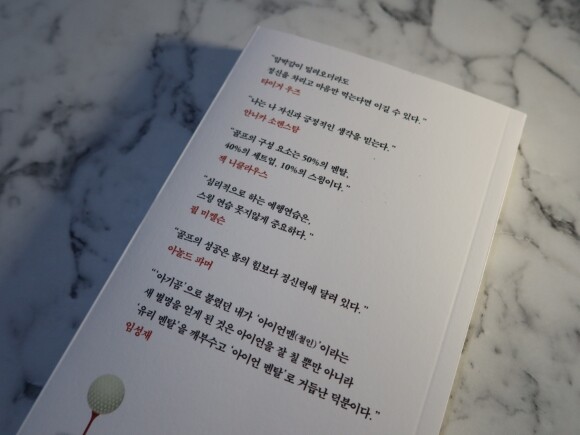 "압박감이 밀려오더라도
정신을 차리고 마음만 먹는다면 이길 수 있다."
타이거 우즈
"나는 나 자신과 긍정적인 생각을 믿는다."
안니카 소렌스탐
"골프의 구성 요소는 50%의 멘탈,
40%의 세트업, 10%의 스윙이다."
잭 니클라우스
"심리적으로 하는 예행연습은,
스윙 연습 못지않게 중요하다."
필 미켈슨
"골프의 성공은 몸의 힘보다 정신력에 달려 있다."
아놀드 파머
"'아기곰'으로 불렸던 내가 '아이언맨(철인)'이라는
새 별명을 얻게 된 것은 아이언을 잘 칠 뿐만 아니라
'유리 멘탈'을 깨부수고 '아이언 멘탈'로 거듭난 덕분이다."
임성재